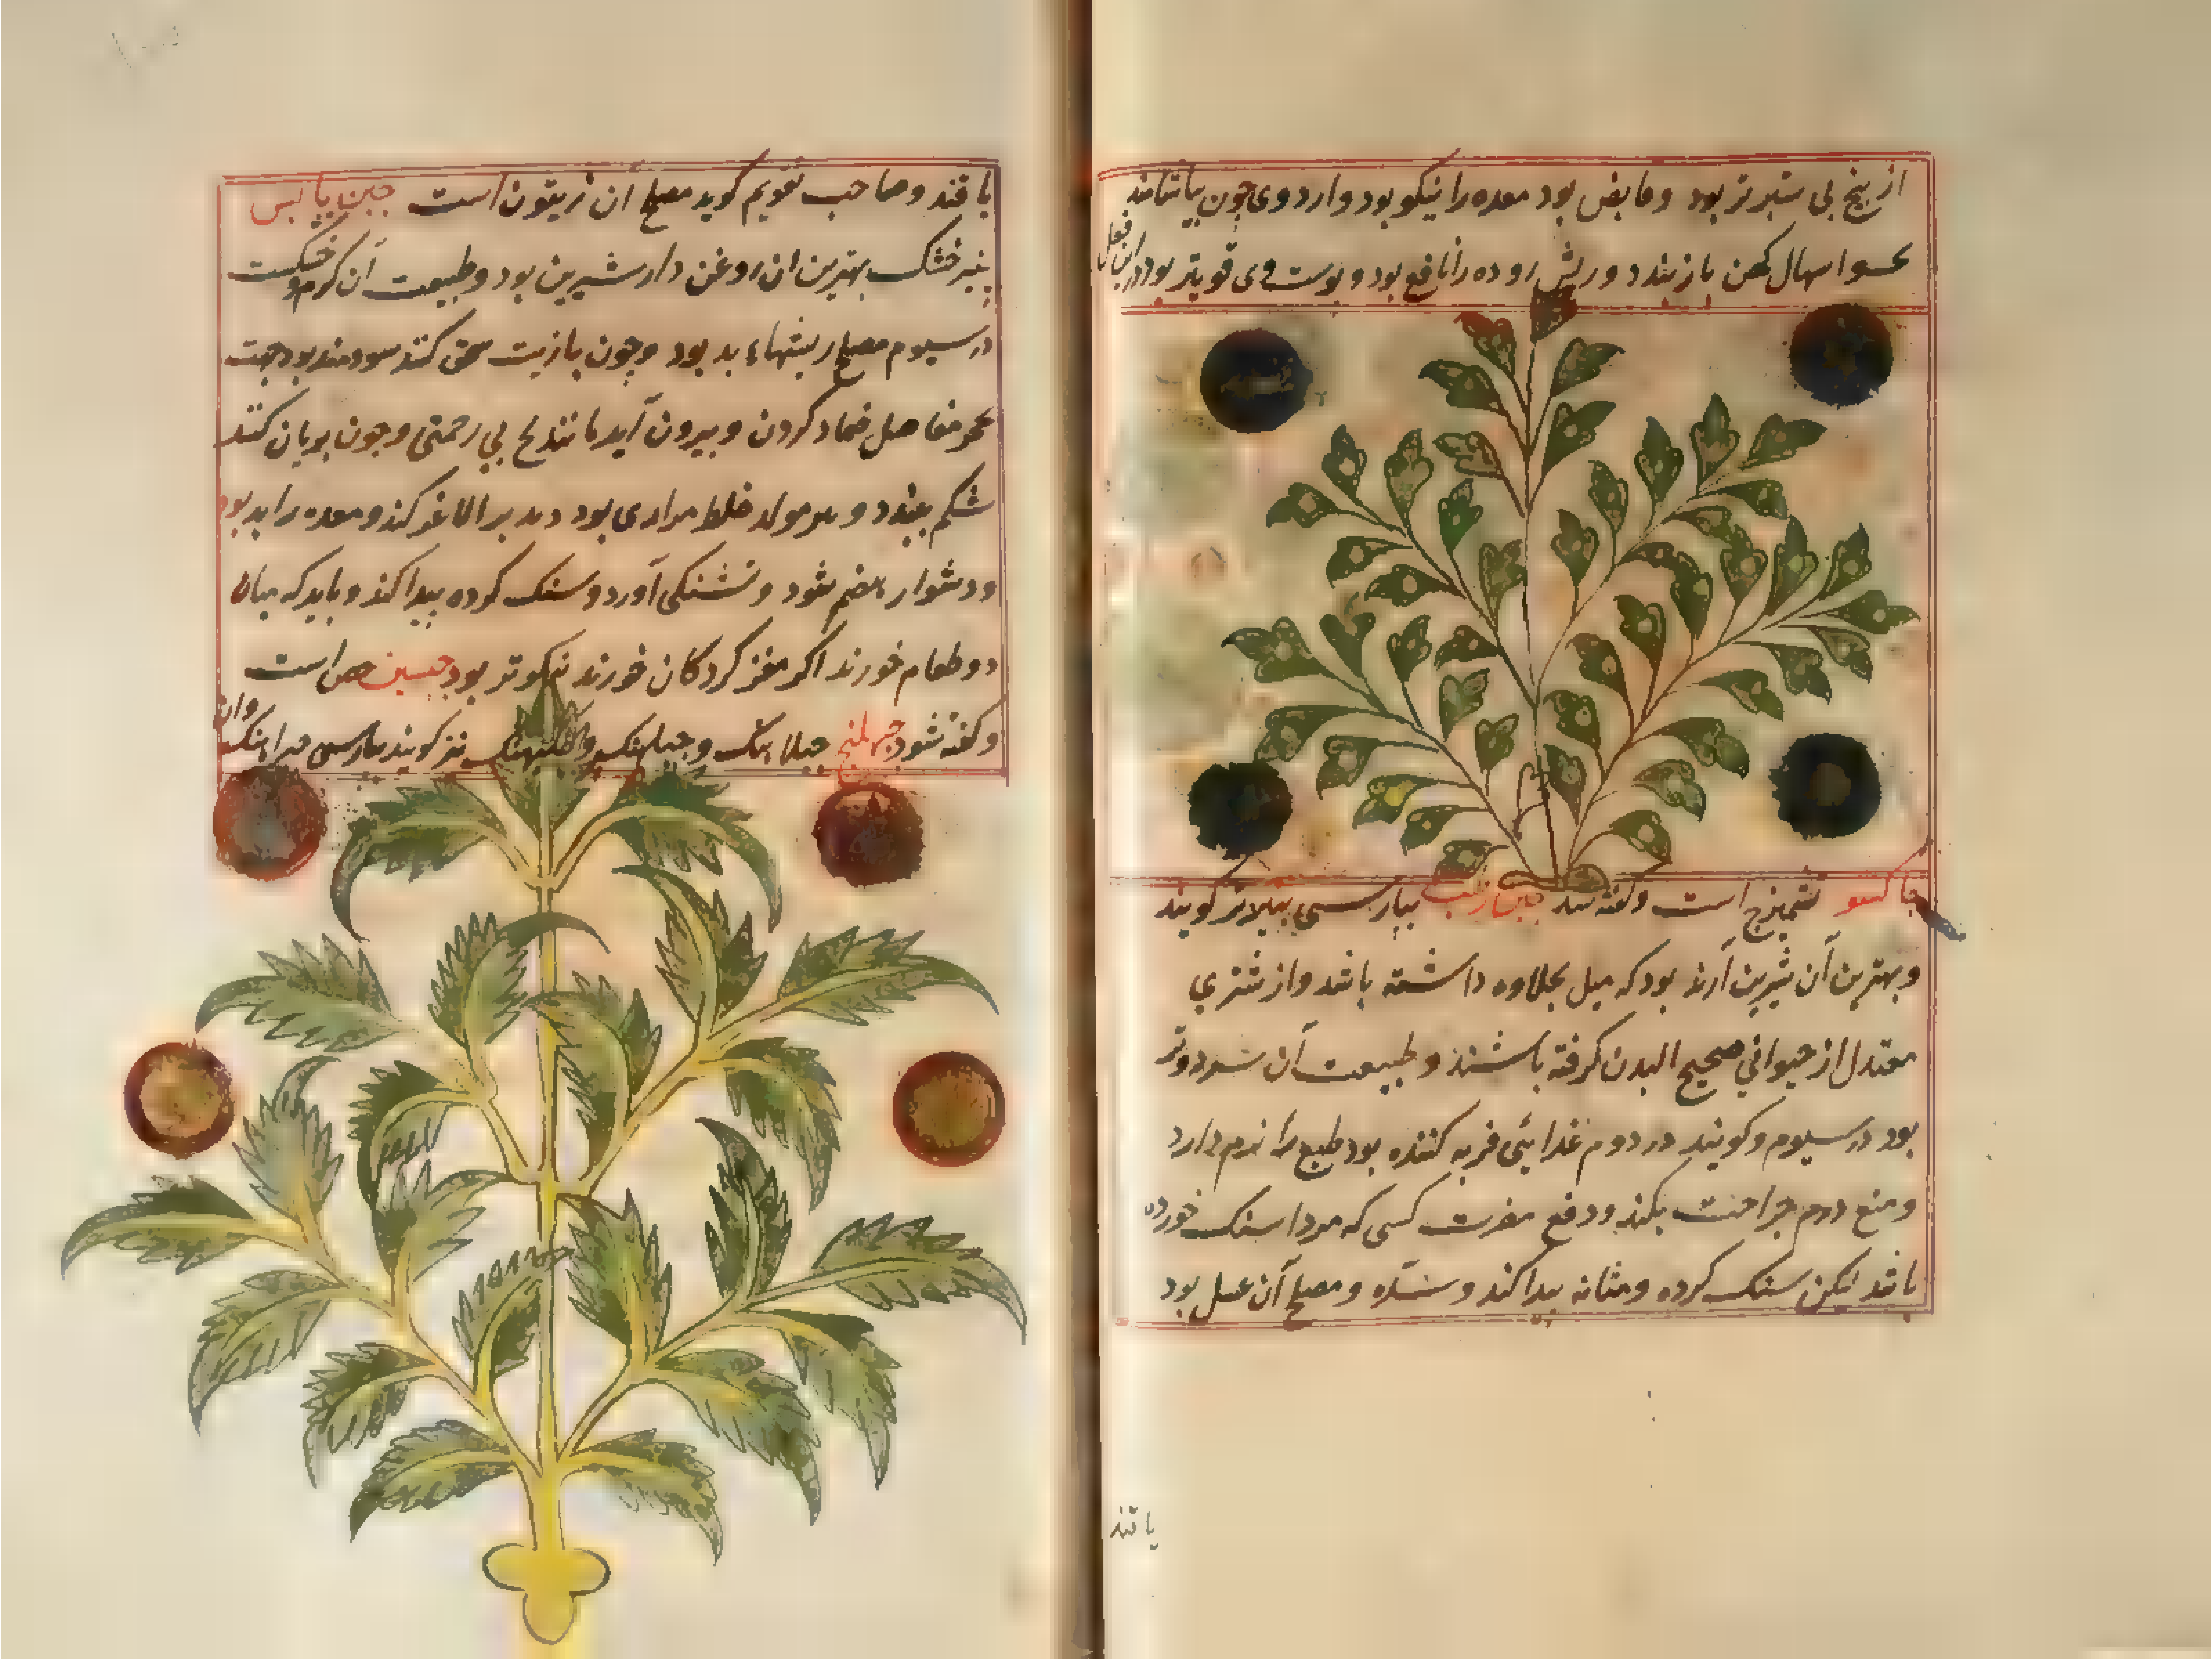 از بیخ بی ستبرتر بود و قابض بود معده را نیکو بود و ارد وی چون بیاشامند
اسهال کهن باز بندد و ریش روده را نافع بود و پوست وی قویتر بود در این فعل
جاکسو تشمیزج است و گفته شد جبن رطب بپارسی پنیر تر کویند
و بهترین آن شیرین آرند بود که میل بحلاوه داشته باشد و از شتری
معتدل از حیوانی صحیح البدن کرفته باشند و طبیعت آن سرد و تر
بود در سیوم و کویند در دوم غذایئی فربه کننده بود طبع را نرم دارد
و منع ورم جراحت بکند و دفع مضرت کسی که مرداسنک خورده
باشد لیکن سنک کرده و مثانه پیدا کند و سده و مصلح آن عسل بود
یا قند
یا قند و صاحب تقویم کوید مصلح ان زیتون است جبن یابس
پنیر خشک بهترین ان روغن دار شیرین بود و طبیعت آن کرم و خشکست
در سیوم مصلح ریشهاء بد بود و چون با زیت سحق کنند سودمند بود جهت
تحجر مفاصل ضماد کردن و بیرون آید مانند کچ بی زحمتی و چون بریان کنند
شکم ببندد و مولد خلط مراری بود و بدن را لاغر کند و معده را بد بود
و دشوار هضم شود و تشنکی آورد و سنک کرده پیدا کند و باید که میان
دو طعام خورند اکر مغز کردکان خورند نیکوتر بود جبسین جص است
و کفته شود جبلهنج جبلاهنک و جبلهنک نیز کویند بپارسی